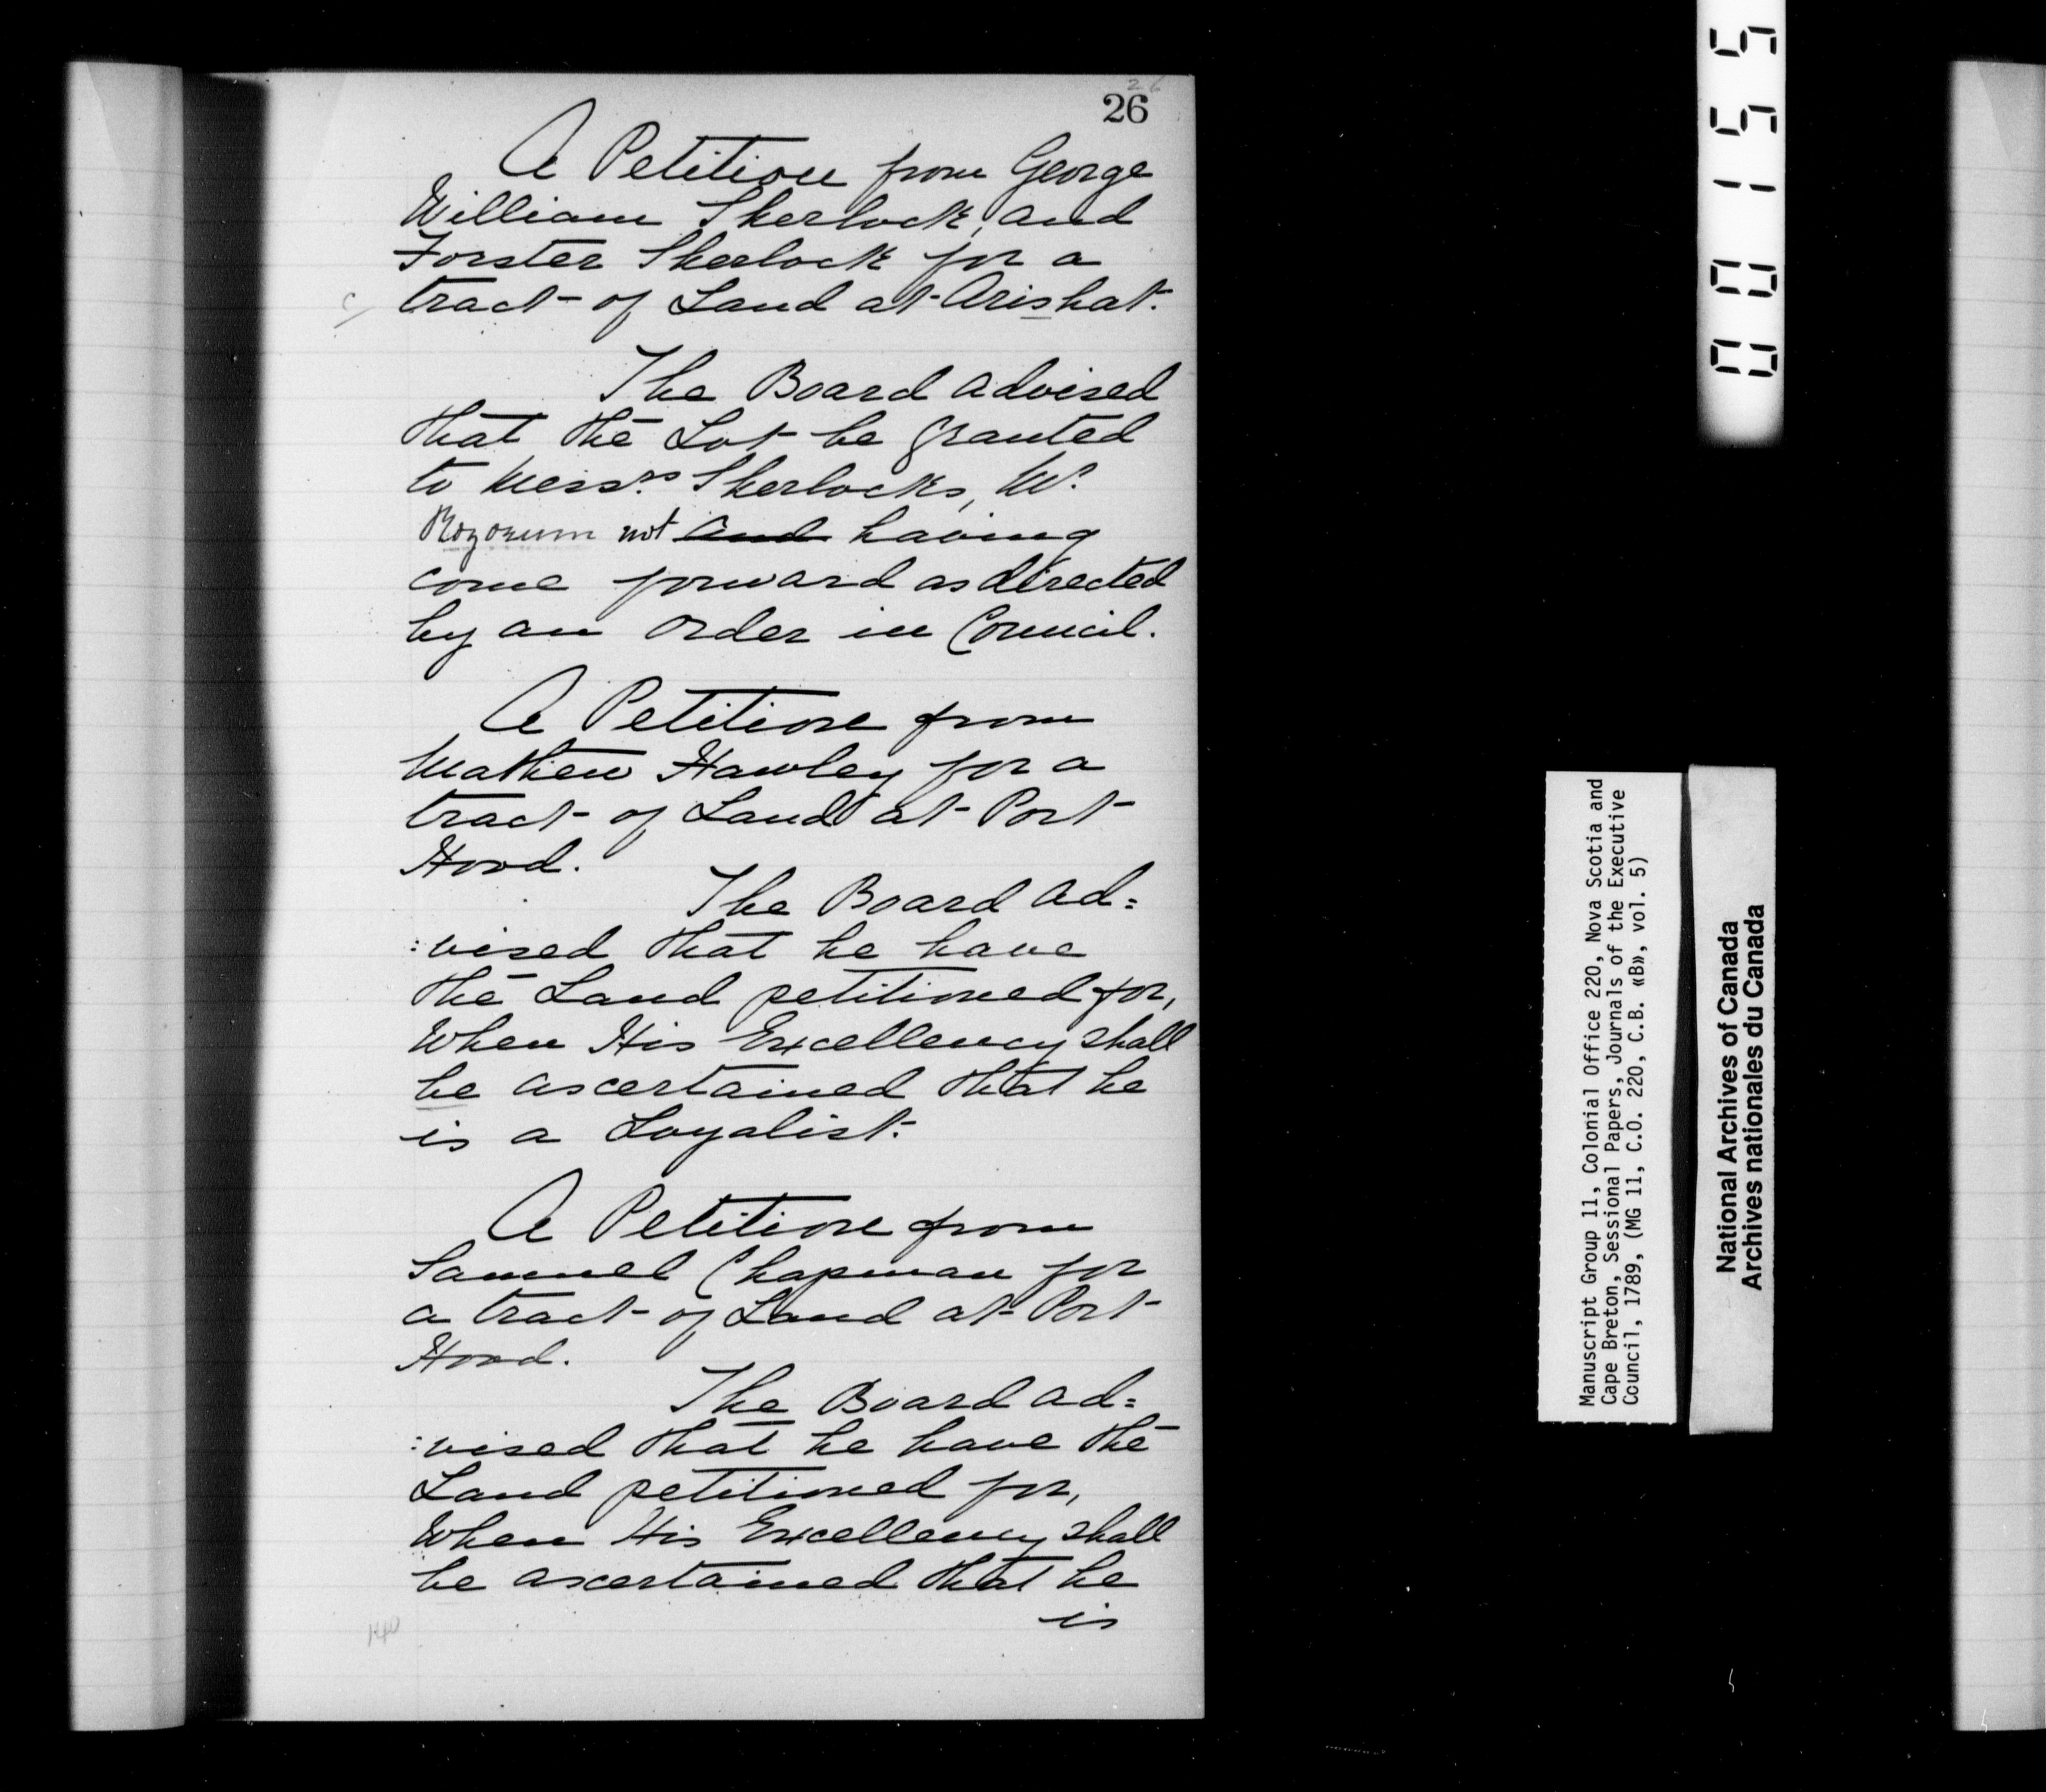 26
26
A Petition from George
William Sherlock, and
Forster Sherlock for a
tract of Land at Arishat.
The Board advised
that the Lot be granted
to Mess.rs Sherlocks, Mr.
not and having
come forward as directed
by an Order in Council.
A Petition from
Mathew Hawley for a
tract of Land at Port
Hood.
The Board ad=
:vised that he have
the Land petitioned for,
When His Excellency shall
be ascertained that he
is a Loyalist.
A Petition from
Samuel Chapman for
a tract of Land at Port
Hood.
The Board ad=
:vised that he have the
Land petitioned for,
When His Excellency shall
be ascertained that he
is
140
00155
Manuscript Group 11, Colonial Office 220, Nova Scotia and
Cape Breton, Sessional Papers, Journals of the Executive
Council, 1789, (MG 11, C.O. 220, C.B. «B», vol. 5)
National Archives of Canada
Archives nationales du Canada